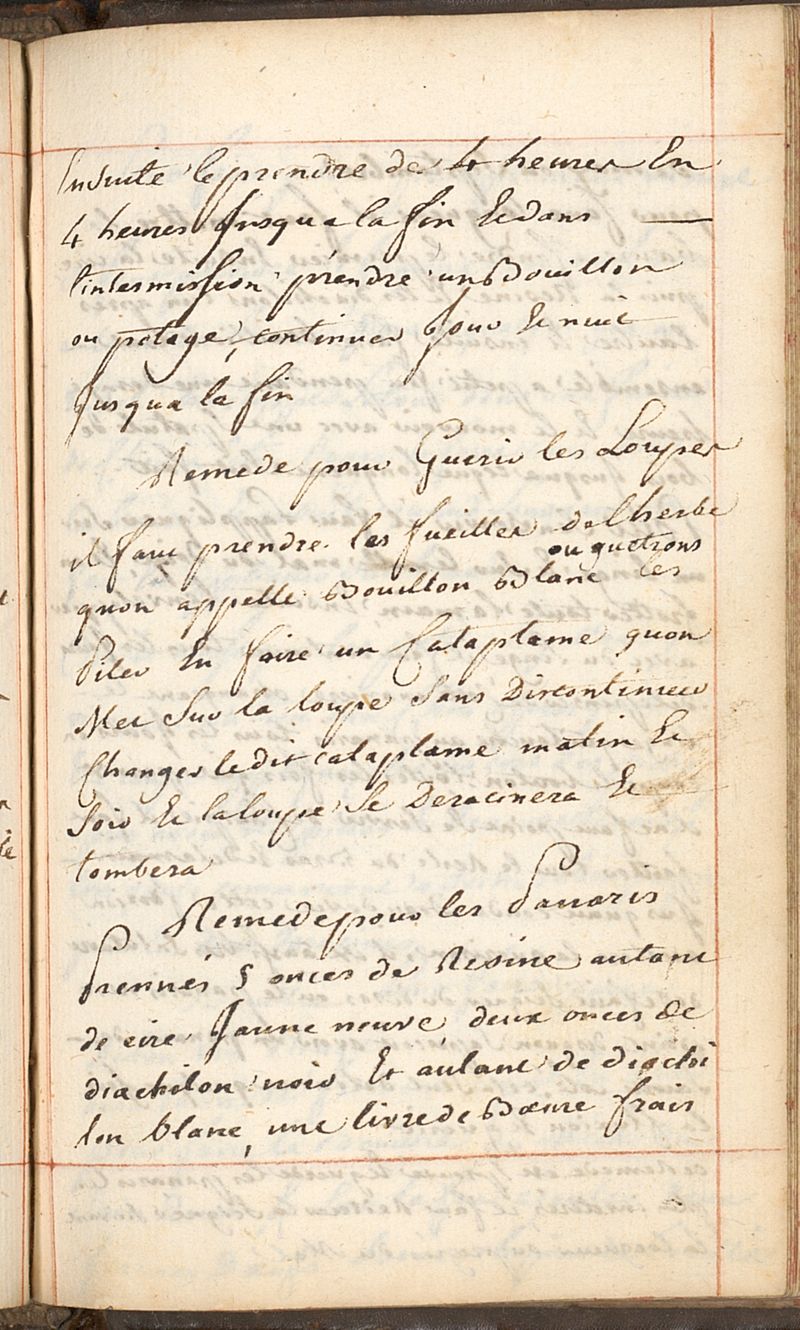 Ensuite le prendre de 4 heures En
4 heures Jusqu a la fin Et dans
l'intermission prendre un Bouillon
ou potage, continuer Jour Et nuit
Jusqua la fin
Remede pour Guerir les Loupes
il faut prendre les fueilles de lherbe
quon appelle Bouillon Blanc les
Piler En faire un Cataplame quon
Met Sur la loupe Sans Discontinuer
Changer ledit cataplame matin Et
Soir Et la loupe Se Deracinera Et
tombera
Remede pour les Panaris
Prennés 5 onces de Resine autant
de cire Jaune neuve deux onces de
diachilon noir Et autant de diachi
lon blanc, une livre de Bœure frais